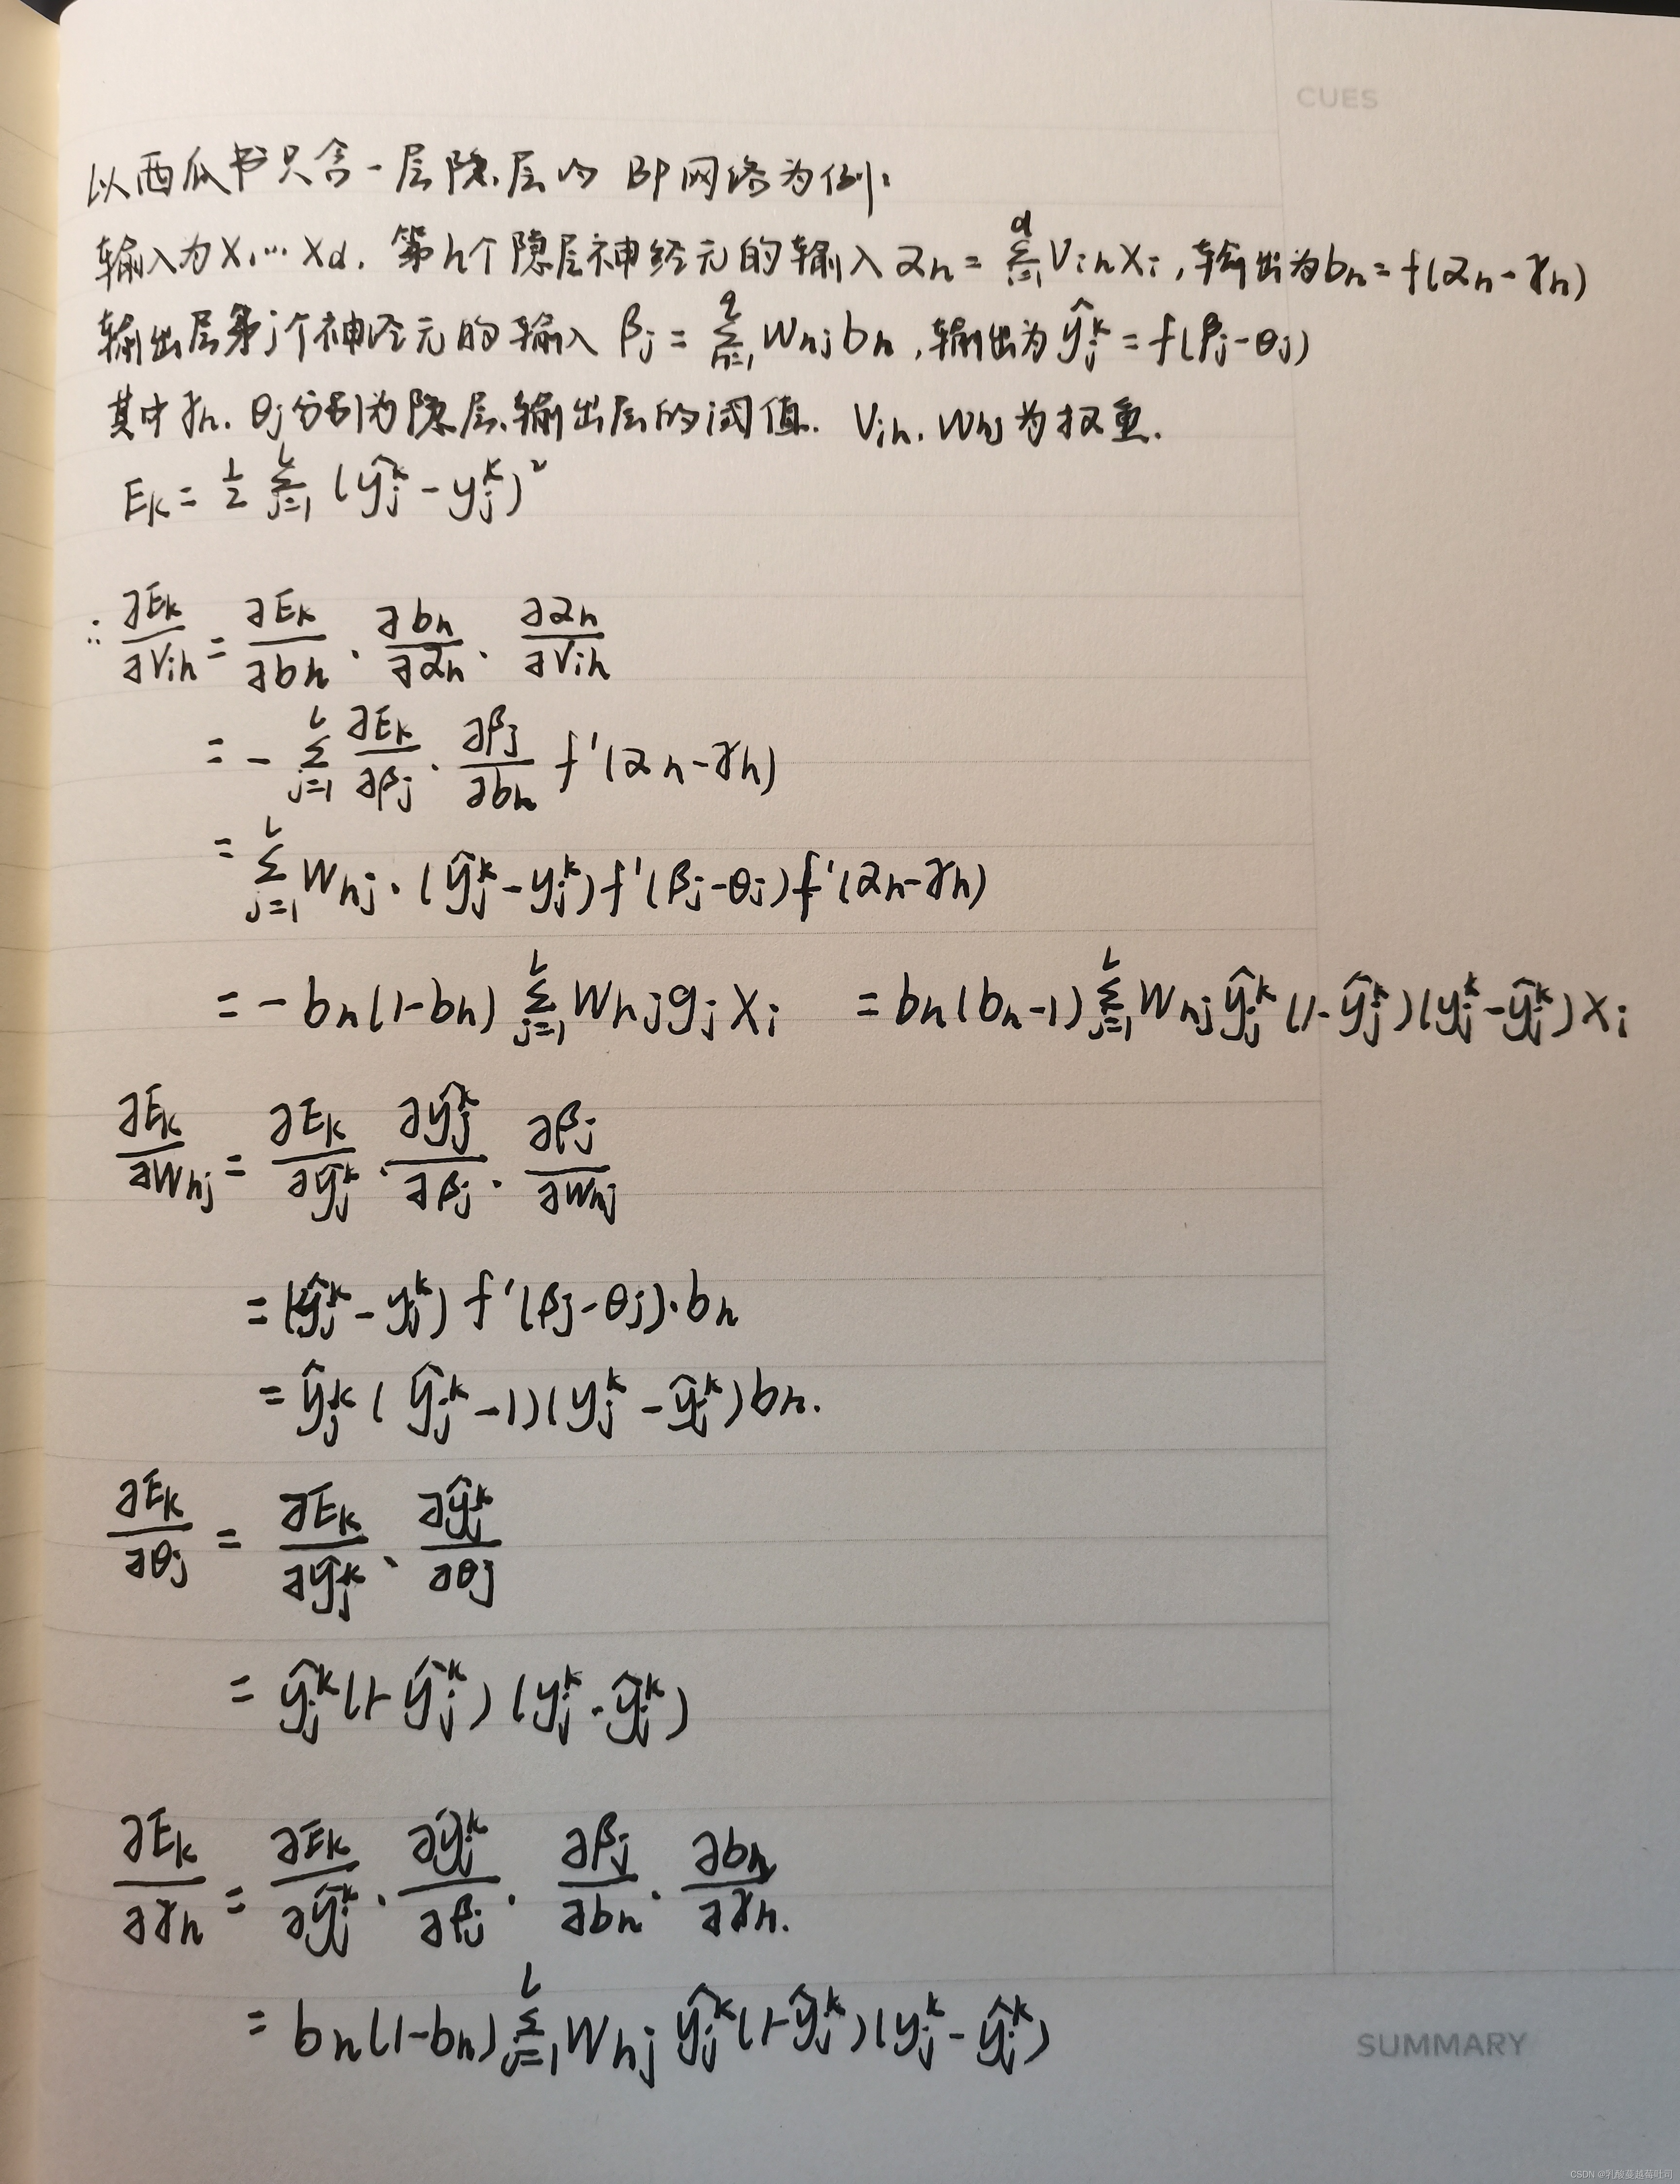 CUES
以西瓜书只含一层隐层的 BP网络为例:
输入为X₁…Xd. 第h个隐层神经元的输入 αh = Σ(i=1→d) Vih Xi, 输出为bh = f(αh - γh)
输出层第j个神经元的输入 βj = Σ(h=1→q) Whj bh, 输出为 ŷj^k = f(βj - θj)
其中 γh. θj分别为隐层、输出层的阈值. Vih. Whj为权重.
Ek = 1/2 Σ(j=1→L) (ŷj^k - yj^k)²
∴ ∂Ek/∂Vih = ∂Ek/∂bh · ∂bh/∂αh · ∂αh/∂Vih
= - Σ(j=1→L) ∂Ek/∂βj · ∂βj/∂bh f'(αh - γh)
= Σ(j=1→L) Whj · (ŷj^k - yj^k) f'(βj - θj) f'(αh - γh)
= - bh(1-bh) Σ(j=1→L) Whj gj Xi = bh(bh-1) Σ(j=1→L) Whj ŷj^k (1-ŷj^k)(yj^k - ŷj^k) Xi
∂Ek/∂Whj = ∂Ek/∂ŷj^k · ∂ŷj^k/∂βj · ∂βj/∂Whj
= (ŷj^k - yj^k) f'(βj - θj) · bh
= ŷj^k (ŷj^k - 1)(yj^k - ŷj^k) bh.
∂Ek/∂θj = ∂Ek/∂ŷj^k · ∂ŷj^k/∂θj
= ŷj^k (1-ŷj^k) (yj^k - ŷj^k)
∂Ek/∂γh = ∂Ek/∂ŷj^k · ∂ŷj^k/∂βj · ∂βj/∂bh · ∂bh/∂γh.
= bh(1-bh) Σ(j=1→L) Whj ŷj^k (1-ŷj^k)(yj^k - ŷj^k)
SUMMARY
CSDN @乳酸蔓越莓吐司